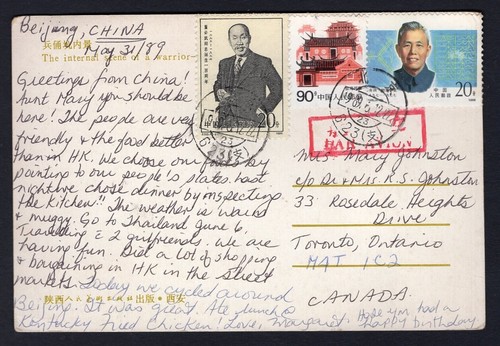 Beijing, CHINA
May 31/89
兵俑坑内景
The internal scene of a warrior-
Greetings from China!
Aunt Mary you should be
here! The people are very
friendly & the food better
than in HK. We choose our food by
pointing to other people's plates. Last
night we chose dinner by inspecting
the kitchen!! The weather is warm
& muggy. Go to Thailand June 6,
Travelling c̄ 2 girlfriends. We are
having fun. Did a lot of shopping
& bargaining in HK in the street
markets. Today we cycled around
Beijing. It was great. Ate lunch @
Kentucky Fried Chicken! Love, Margaret. Hope you had a
happy birthday
陕西人民美术出版社出版 • 西安
20分
90分 中国人民邮政
中国
人民邮政
20分
PAR AVION
Mrs Mary Johnston
c/o Dr & Mrs. R.S. Johnston
33 Rosedale Heights
Drive
Toronto, Ontario
M4T 1C2
CANADA.